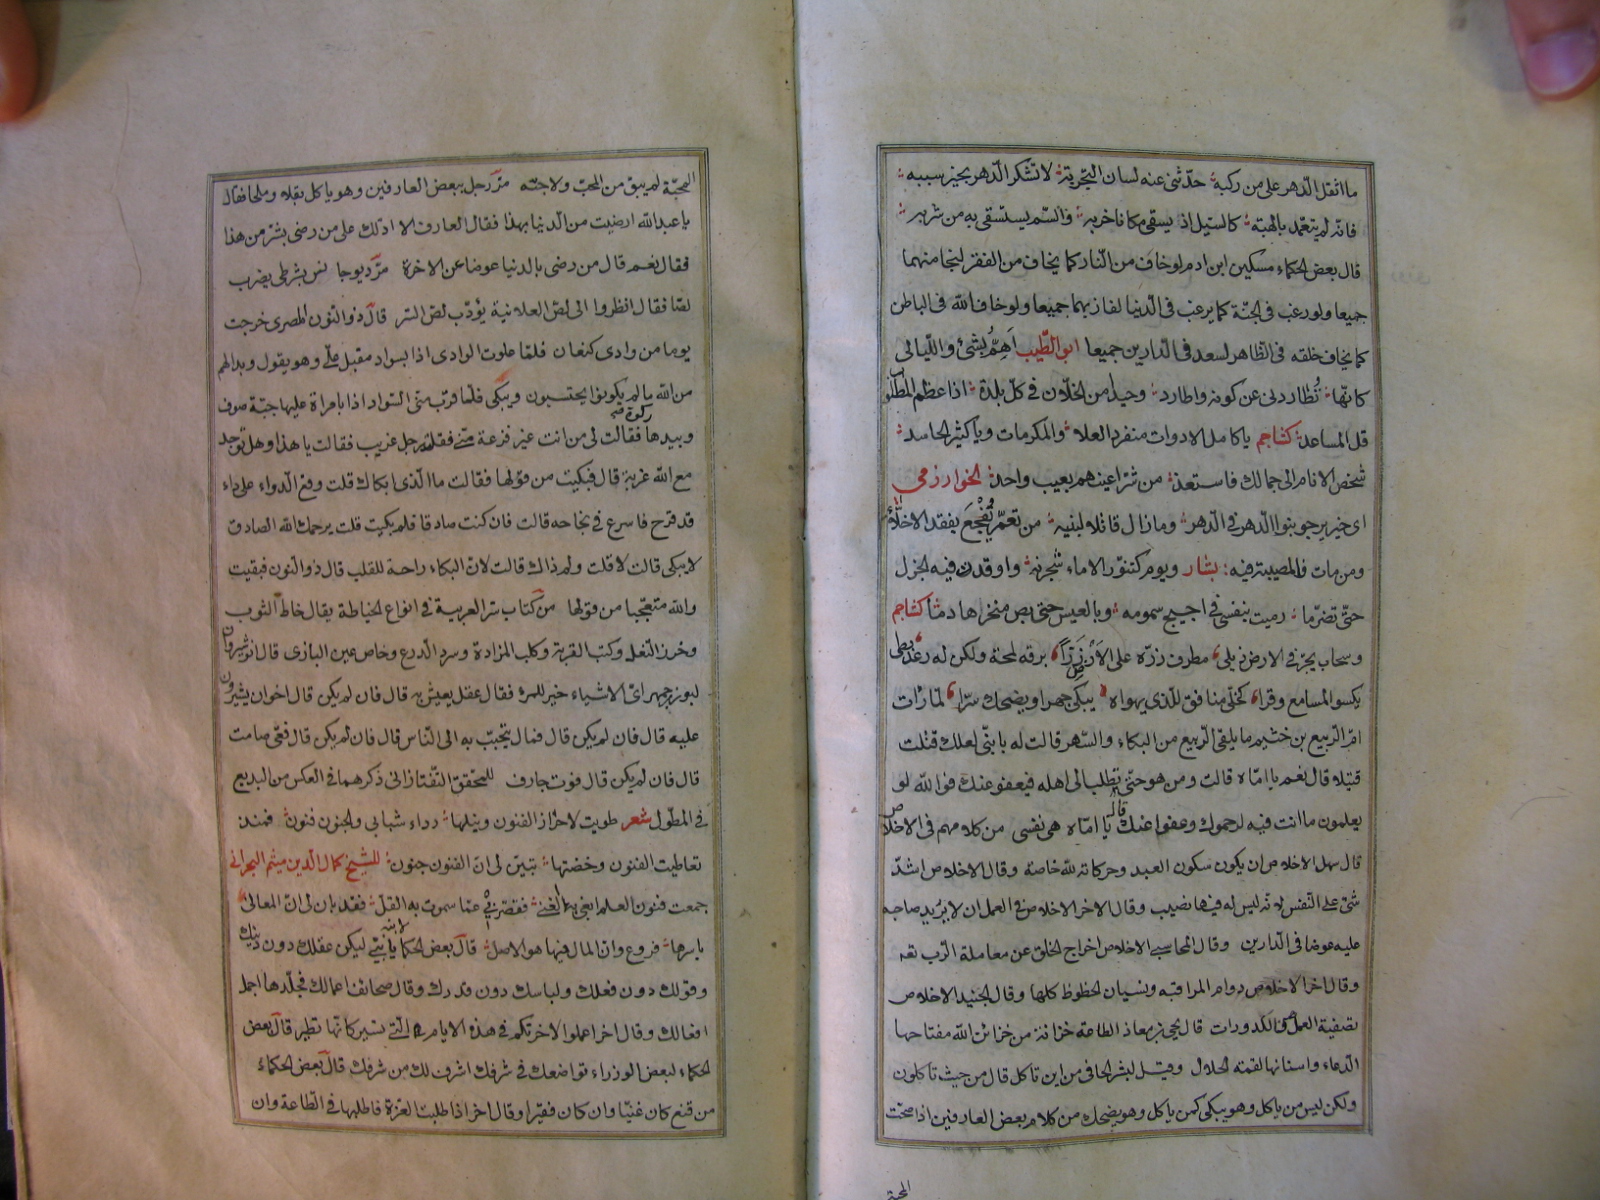 ما اثقل الدهر على من ركبه حدثنى عنه لسان التجربة لا تشكر الدهر بخير سببه
فانه لم يتعمد بالهبة كالسيل اذ يسقى مكانا خربه والسم يستشفى به من شربه
قال بعض الحكماء مسكين ابن ادم لو خاف من النار كما يخاف من الفقر لنجا منهما
جميعا ولو رغب فى الجنة كما يرغب فى الدنيا لفاز بهما جميعا ولو خاف الله فى الباطن
كما يخاف خلقه فى الظاهر لسعد فى الدارين جميعا ابو الطيب اهم بشئ والليالى
كانها تطاردنى عن كونه واطارد وحيدا من الخلان فى كل بلدة اذا عظم المطلوب
قل المساعد كشاجم يا كامل الادوات منفرد العلا والمكرمات ويا كثير الحاسد
شخص الانام الى جمالك فاستعذ من شر اعينهم بعيب واحد الخوارزمى
اى خير يرجو بنوا الدهر فى الدهر وما زال قاتلا لبنيه من تعمر يفجع بفقد الاخلاء
ومن مات فالمصيبة فيه بشار ويوم كتنور الاماء شجرنه واوقدن فيه الجزل
حتى تضرما رميت بنفسى فى اجيج سمومه وبالعيس حتى بض منخرها دما كشاجم
وسحاب يجر فى الارض ذيلى مطرف زره على الارض زرا برقه لمحة ولكن له رعد بطى
يكسو المسامع وقرا كخلى منافق للذى يهواه يبكى جهرا ويضحك سرا لما رات
ام الربيع بن خثيم ما يلقى الربيع من البكاء والسهر قالت له يا بنى لعلك قتلت
قتيلا قال نعم يا اماه قالت ومن هو حتى نطلب الى اهله فيعفو عنك فوالله لو
يعلمون ما انت فيه لرحموك وعفوا عنك قال يا اماه هى نفسى من كلامهم فى الاخلاص
قال سهل الاخلاص ان يكون سكون العبد وحركاته لله خاصة وقال الاخلاص اشد
شئ على النفس لانه ليس له فيها نصيب وقال الاخر الاخلاص فى العمل ان لا يريد صاحبه
عليه عوضا فى الدارين وقال المحاسبى الاخلاص اخراج الخلق عن معاملة الرب تعه
وقال اخر الاخلاص دوام المراقبه ونسيان الحظوظ كلها وقال الجنيد الاخلاص
تصفية العمل من الكدورات قال يحيى بن معاذ الطاعة خزانة من خزائن الله مفتاحها
الدعاء واسنانها لقمة الحلال وقيل لبشر الحافى من اين تاكل قال من حيث تاكلون
ولكن ليس من ياكل وهو يبكى كمن ياكل وهو يضحك من كلام بعض العارفين اذا صحت
المحبة
المحبة لم يبق من المحب ولا جثه مر رجل ببعض العارفين وهو ياكل بقلا وملحا فقال
يا عبد الله ارضيت من الدنيا بهذا فقال العارف الا ادلك على من رضى بشر من هذا
فقال نعم قال من رضى بالدنيا عوضا عن الاخرة مر ديوجانس بشرطى يضرب
لصا فقال انظروا الى لص العلانية يؤدب لص السر قال ذو النون المصرى خرجت
يوما من وادى كنعان فلما علوت الوادى اذا بسواد مقبل على وهو يقول وبدا لهم
من الله ما لم يكونوا يحتسبون ويبكى فلما قرب منى السواد اذا بامراة عليها جبة صوف
وبيدها ركوة فقالت لى من انت غير فزعة منى فقلت رجل غريب فقالت يا هذا وهل توجد
مع الله غربة قال فبكيت من قولها فقالت ما الذى ابكاك قلت وقع الدواء على داء
قد قرح فاسرع فى نجاحه قالت فان كنت صادقا فلم بكيت قلت يرحمك الله الصادق
لا يبكى قالت لا قلت ولم ذاك قالت لان البكاء راحة للقلب قال ذو النون فبقيت
والله متعجبا من قولها من كتاب سر العربية فى انواع الخياطة يقال خاط الثوب
وخرز النعل وكتب القربة وكلب المزادة وسرد الدرع وخاص عين البازى قال انوشيروان
لبوزرجمهر اى الاشياء خير للمرء فقال عقل يعيش به قال فان لم يكن قال اخوان يشيرون
عليه قال فان لم يكن قال فمال يتحبب به الى الناس قال فان لم يكن قال فعى صامت
قال فان لم يكن قال فموت جارف للمحقق التفتازانى ذكرهما فى العكس من البديع
فى المطول شعر طويت لاحراز الفنون ونيلها رداء شبابى والجنون فنون فمنذ
تعاطيت الفنون وخضتها تبين لى ان الفنون جنون للشيخ كمال الدين ميثم البحرانى
جمعت فنون العلم ابغى بها الغنى فقصر بى عما سموت به القل فقد بان لى ان المعالى
باسرها فروع وان المال فيها هو الاصل قال بعض الحكما لابنه يا بنى ليكن عقلك دون دينك
وقولك دون فعلك ولباسك دون قدرك وقال صحائف اعمالك فجلدها اجمل
افعالك وقال اخر اعملوا لاخرتكم فى هذه الايام التى تسير كانها تطير قال بعض
الحكماء لبعض الوزراء تواضعك فى شرفك اشرف لك من شرفك قال بعض الحكماء
من قنع كان غنيا وان كان فقيرا وقال اخر اذا طلبت العزة فاطلبها فى الطاعة وان